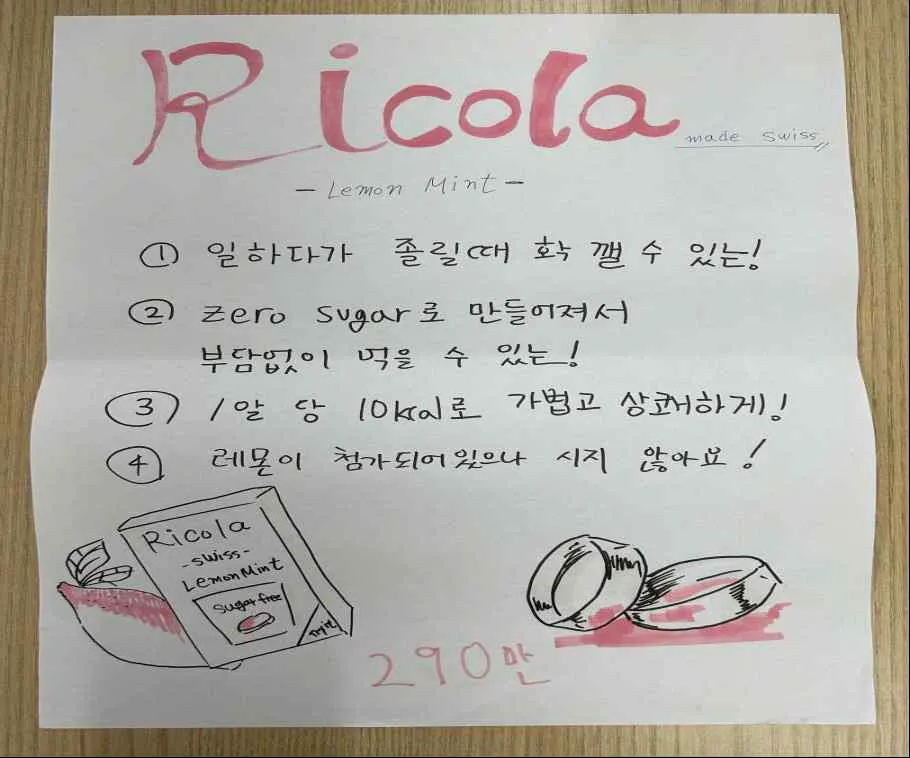 Ricola
made swiss
- Lemon Mint -
① 일하다가 졸릴때 확 깰 수 있는!
② Zero sugar로 만들어져서
부담없이 먹을 수 있는!
③ 1알 당 10kcal로 가볍고 상쾌하게!
④ 레몬이 첨가되어있으나 시지 않아요!
Ricola
-swiss-
LemonMint
sugar free
290만